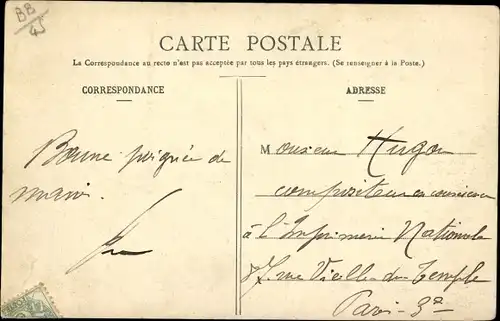 BB
45
CARTE POSTALE
La Correspondance au recto n'est pas acceptée par tous les pays étrangers. (Se renseigner à la Poste.)
CORRESPONDANCE
ADRESSE
Bonne poignée de
main.
Monsieur Hugon
compositeur en
à l'Imprimerie Nationale
87 rue Vieille du Temple
Paris - 3e